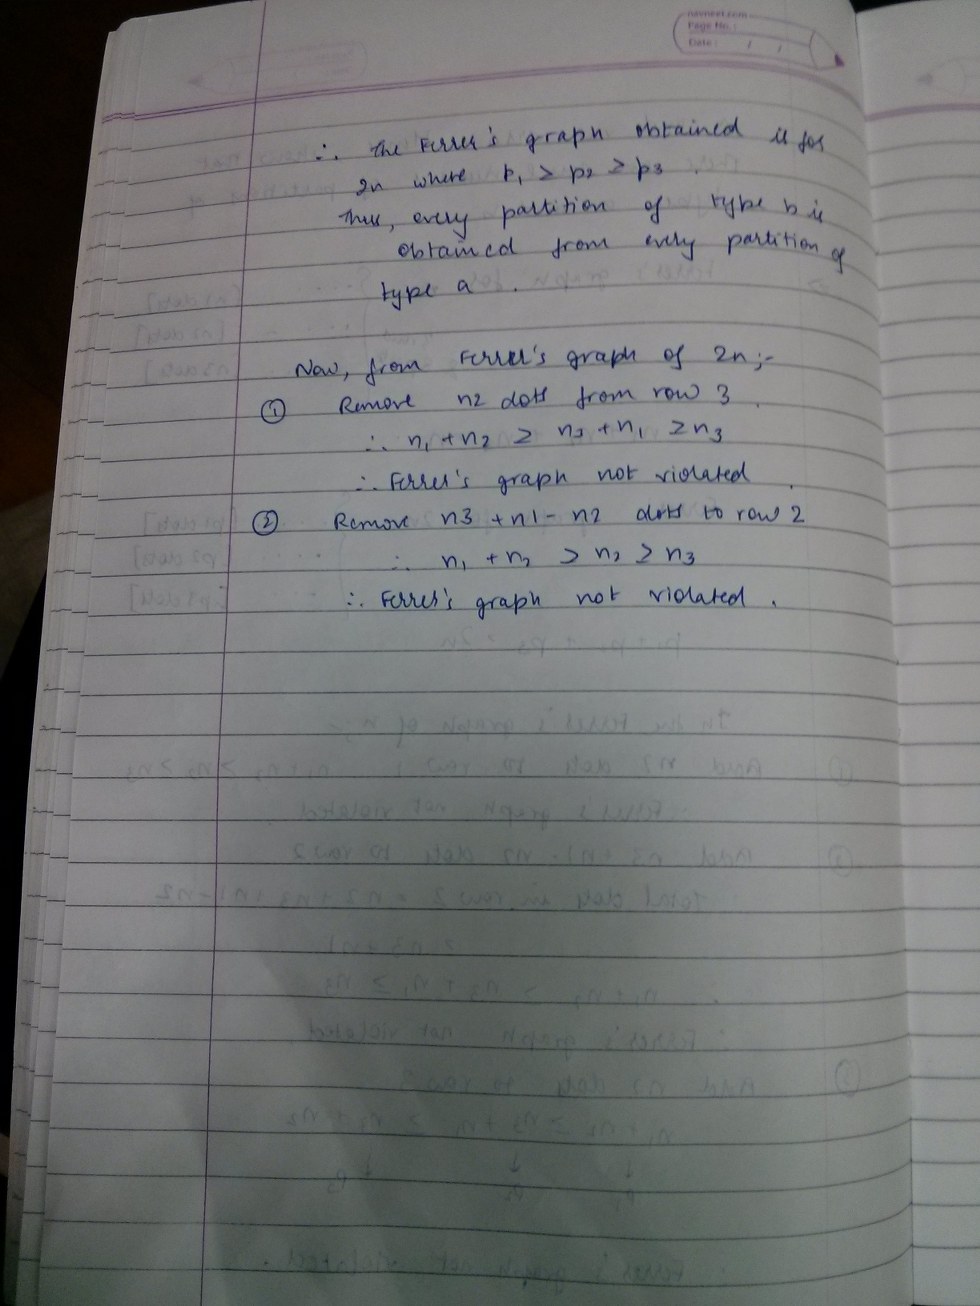 navneet.com
Page No. :
Date : / /
∴ The Ferrer's graph obtained is for
2n where p₁ > p₂ > p₃ .
Thus, every partition of type b is
obtained from every partition of
type a .
Now, from Ferrer's graph of 2n ;-
① Remove n2 dots from row 3 .
∴ n₁ + n₂ ≥ n₃ + n₁ ≥ n₃
∴ Ferrer's graph not violated .
② Remove n3 + n1 - n2 dots to row 2
∴ n₁ + n₂ > n₂ ≥ n₃
∴ Ferrer's graph not violated .